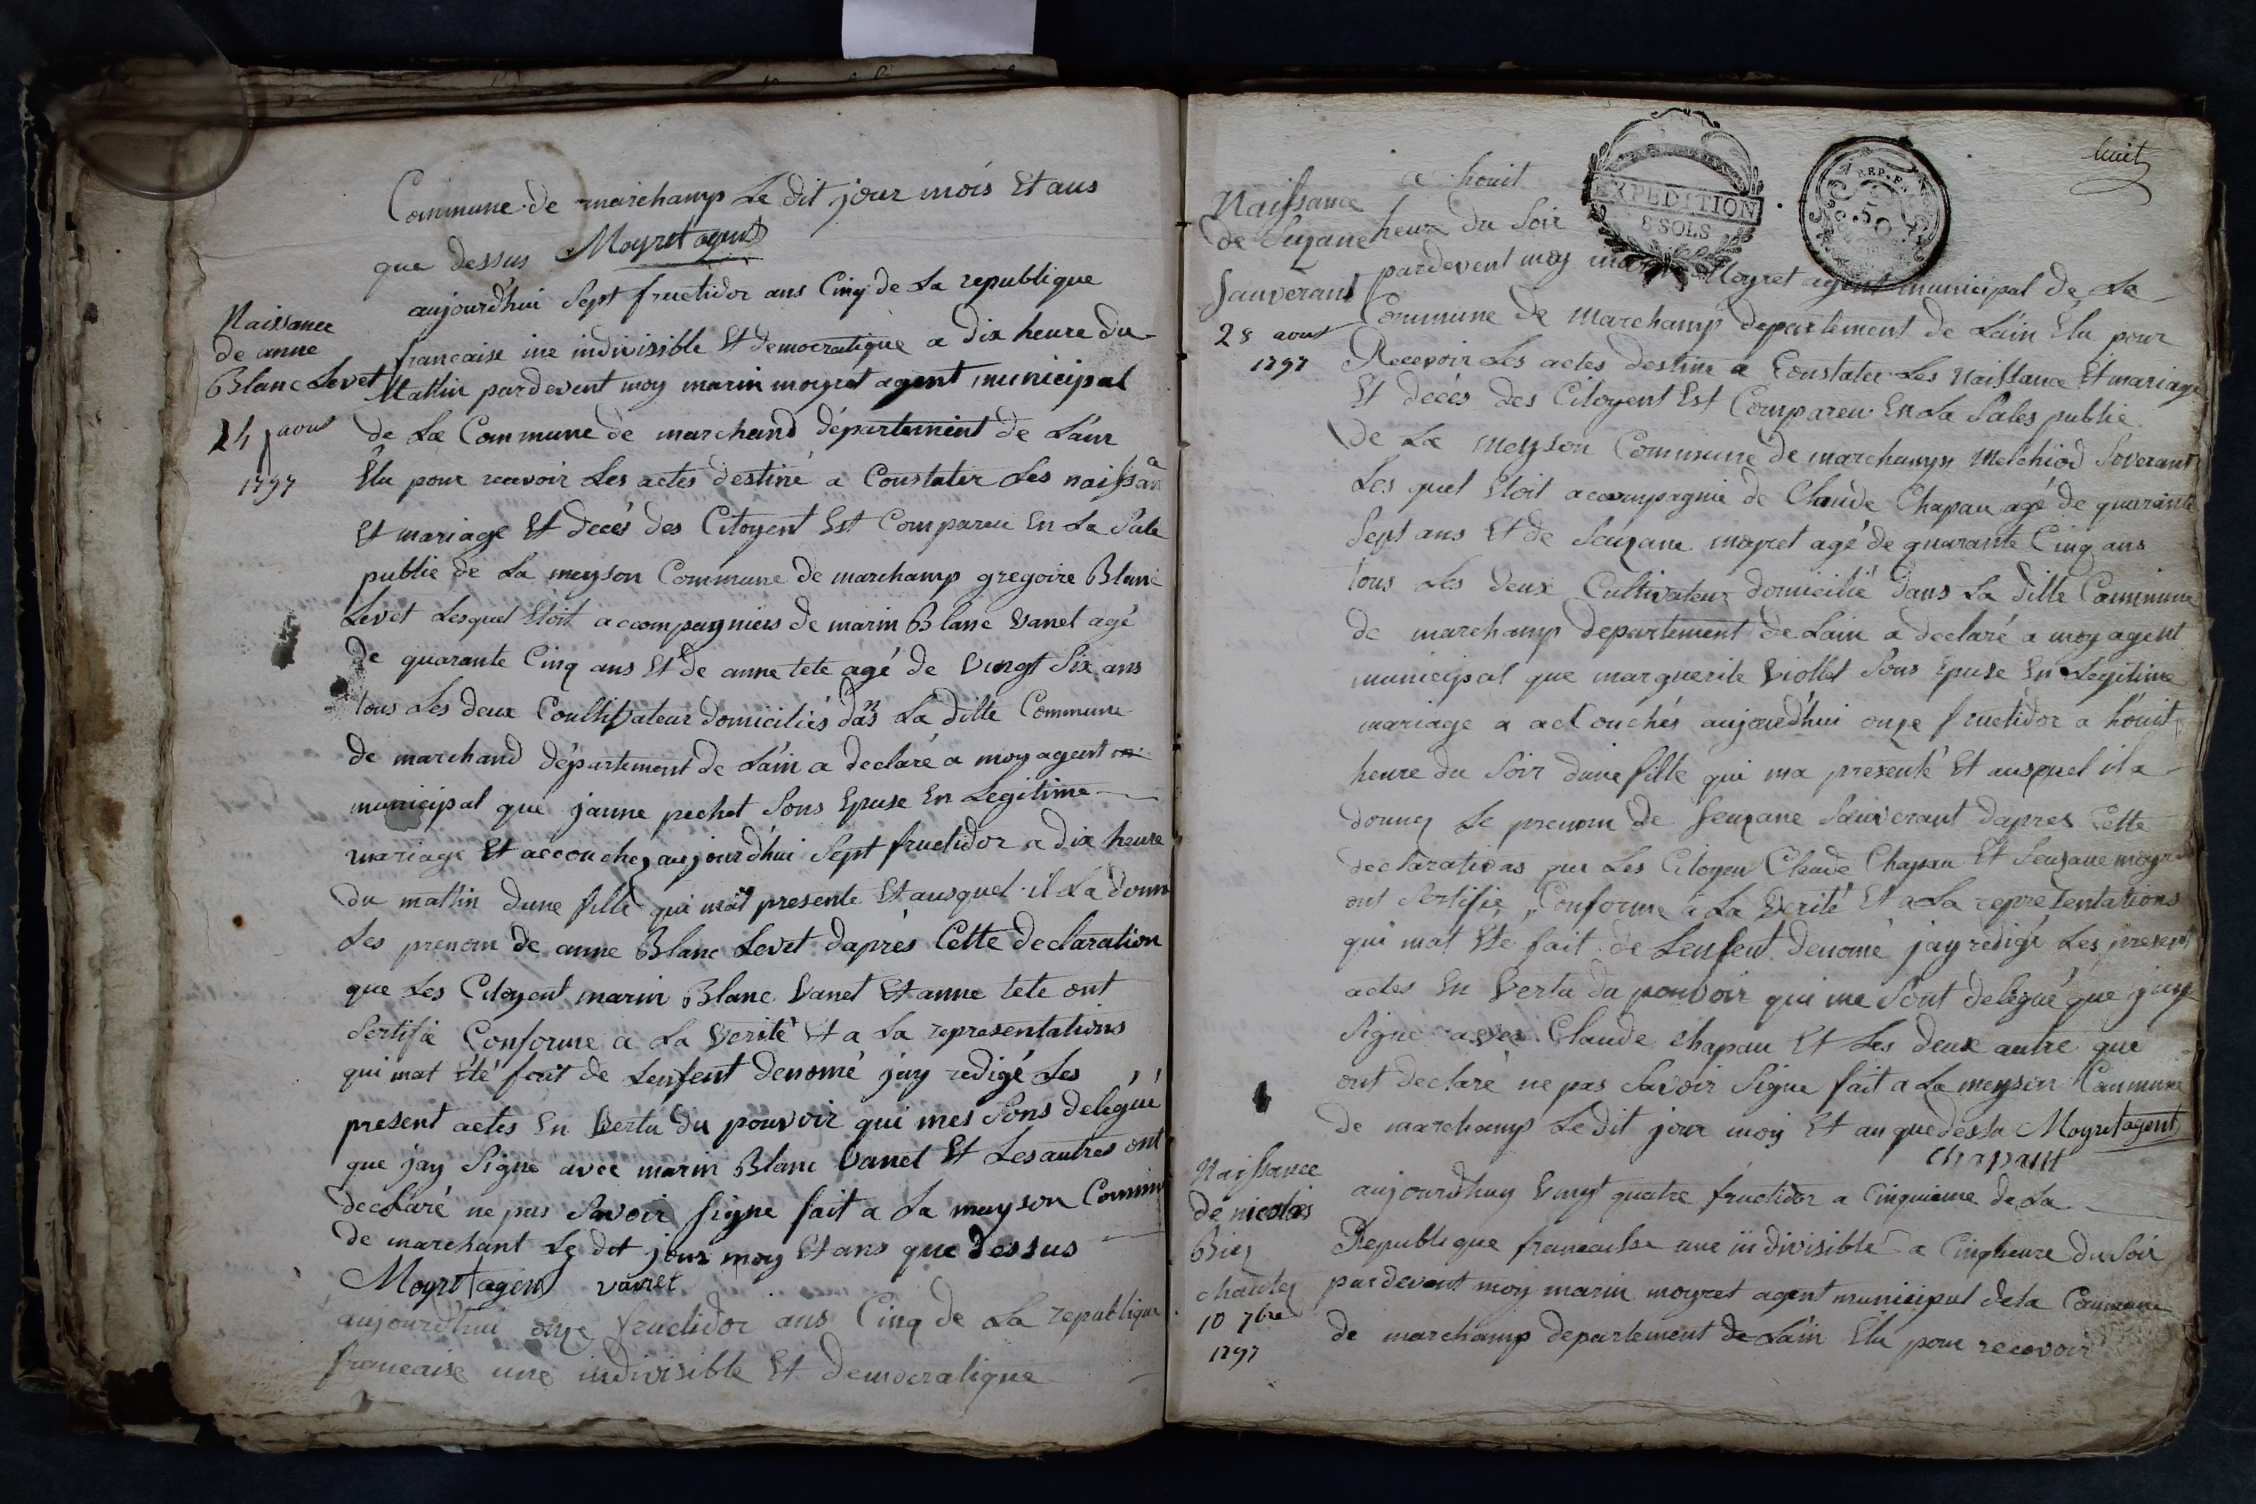 Commune de marchamp Le dit jour mois Et ans
que dessus Moyret agent
Naissance
de anne
Blanc Levet
24 aout
1797
aujourd'hui Sept fructidor ans Cinq de La republique
francaise une indivisible Et democratique a dix heure du
Mattin pardevent moy marin moyret agent municipal
de La Commune de marchand département de L'ain
Elu pour recevoir Les actes destiné a Constater Les naissan
Et mariage Et decés des Citoyent Est Compareu En La Sale
public de La meyson Commune de marchamp gregoire Blanc
Levet Lesquel Etoit accompagniés de marin Blanc Vanet agé
de quarante Cinq ans Et de anne tete agé de Vingt Six ans
tous Les deux Coultivateur domiciliés dans La ditte Commune
de marchand département de L'ain a declaré a moy agent
municipal que janne pechet Sons Epuse En Legitime
mariage Et accouchez aujourd'hui Sept fructidor a dix heure
du mattin dune fille qui mat presente Et ausquel il La donn
Les prenom de anne Blanc Levet daprés Cette declaration
que Les Citoyent marin Blanc Vanet Et anne tete ont
Sertifie Conforme a La Verité Et a La representations
qui mat été fait de Lenfent denomé jay redigé Les
present actes En Vertu du pouvoir qui mes Sons delégué
que jay Signe avec marin Blanc Vanet Et Les autres ont
declaré ne pas Savoir signe fait a La mayson Commun
de marchant Le dit jour moy Et ans que dessus
Moyret agent vanet
aujourd'hui onze fructidor ans Cinq de La republique
francaise une indivisible Et democratique
huit
EXPEDITION
8 SOLS
REP. F.
50
Naissance
de Suzane
Sauverant
28 aout
1797
a houit
heure du Soir
pardevent moy marin Moyret agent municipal de La
Commune de Marchamp departement de L'ain Elu pour
Recevoir Les actes destine a Constater Les Naissance Et mariage
Et decés des Citoyent Est Compareu En La Sales public
de La meyson Commune de marchamp Melchiod Soverant
Les quel Etoit accompagnie de Claude Chapau agé de quarante
Sept ans Et de Souzane moyret agé de quarante Cinq ans
tous Les deux Cultivateur domicilié dans La ditte Commune
de marchamp departement de Lain a declaré a moy agent
municipal que marguerite Viollet Sons Epuse En Legitime
mariage a accouchés aujourd'hui onze fructidor a houit
heure du Soir dune fille qui ma presenté Et ausquel il a
donnez Le prenom de Seuzane Sauverant dapres Cette
declarations que Les Citoyen Claude Chapau Et Seuzane moyre
ont Sertifie Conforme a La Verité Et a La representations
qui mat Eté fait de Lenfent denomé jay redigé Les present
actes En Vertu du pouvoir qui me Sont delégué que jay
Signe avec Claude Chapau Et Les deux autre que
ont declaré ne pas Savoir Signe fait a La meyson Commune
de marchamp Le dit jour moy Et an que dessu Moyret agent
Chapaut
Naissance
de nicolas
Biez
10 7bre
1797
aujourdhuy Vingt quatre fructidor a Cinquieme de La
Republique francaisse une indivisible a Cinq heure du Soir
pardevent moy marin moyret agent municipal de la Commune
de marchamp departement de L'ain Elu pour recevoir